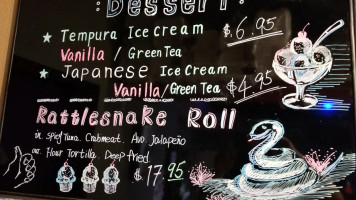 : Dessert :
★ Tempura Ice cream $ 6.95
Vanilla / Green Tea
★ Japanese Ice Cream $ 4.95
Vanilla / Green Tea
Rattlesnake Roll
in. Spicy Tuna. Crabmeat. Avo Jalapeño
out. Flour Tortilla. Deep fried
$ 17.95